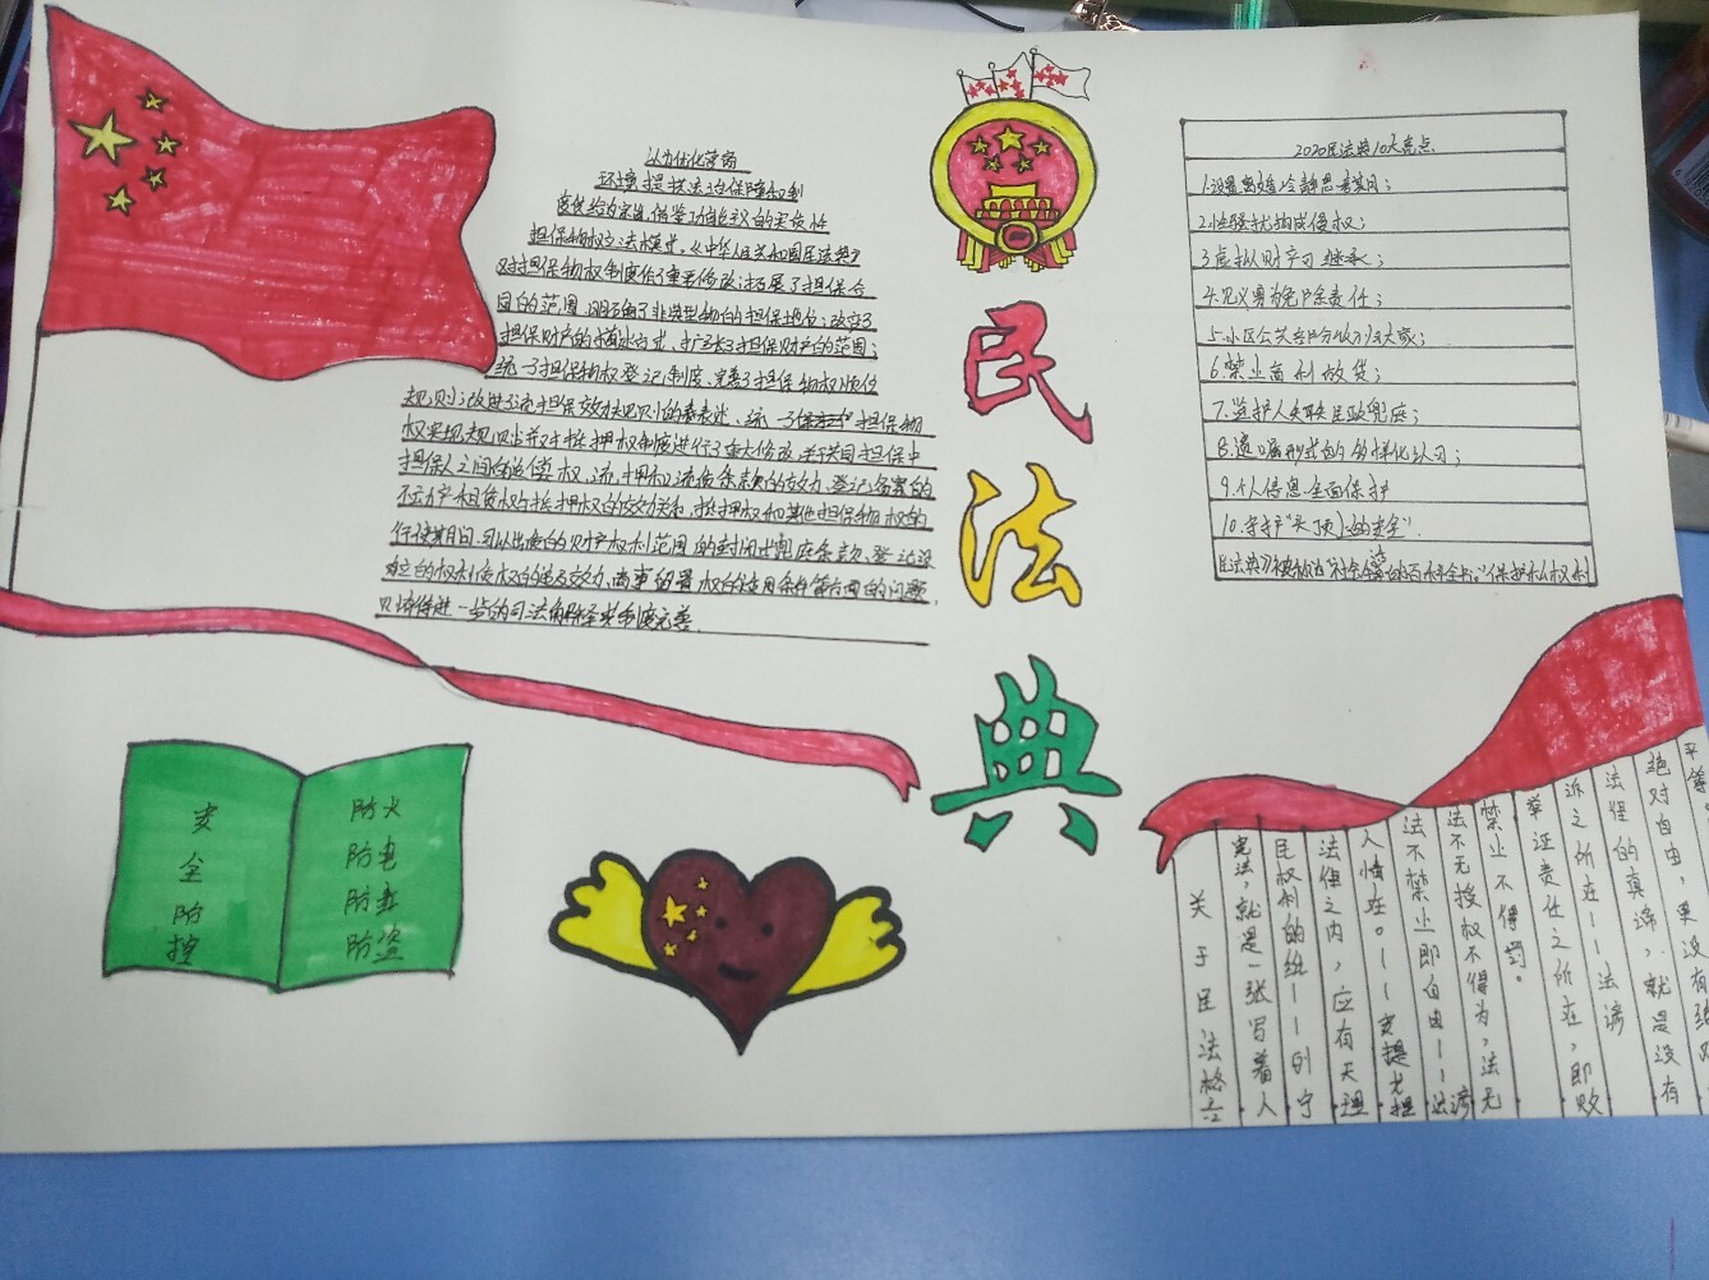 认为优化营商
环境提供法治保障权制
度优给为宗旨，借鉴功能主义的实质性
担保物权立法模式。《中华人民共和国民法典》
对担保物权制度作了重要修改：拓展了担保合
同的范围，明确了非典型物的担保地位；改变了
担保财产的描述方式、扩张了担保财产的范围；
统一了担保物权登记制度、完善了担保物权顺位
规则；改进了流担保效力规则的表述、统一了担保物
权实现规则并对抵押权制度进行了重大修改。关于共同担保中
担保人之间的追偿权、流押和流质条款的效力、登记备案的
不动产租赁权与抵押权的效力关系、抵押权和其他担保物权的
行使期间、可以出质的财产权利范围的封闭兜底条款、登记设
立的权利质权的及效力、商事留置权的适用条件等方面的问题，
只待进一步的司法解释来制度完善。
民
法
典
2020民法典10大亮点
1.设置离婚冷静思考期；
2.性骚扰构成侵权；
3.虚拟财产可继承；
4.见义勇为免除责任；
5.小区公共部分收归大家；
6.禁止高利放贷；
7.监护人失联民政兜底；
8.遗嘱形式的多样化认可；
9.个人信息全面保护
10.守护"头顶上的安全"
民法典》被称为"社会生活的百科全书。"保护私权利
安全防控
防火
防电
防盗
关于民法格言
宪法，就是一张写着人
民权利的纸——列宁
法律之内，应有天理
人情在。——安提尤担
法不禁止即自由——法谚
法不无授权不得为，法无
禁止不得罚。
举证责任之所在，即败
诉之所在——法谚
法律的真谛，就是没有
绝对自由，更没有绝对
平等